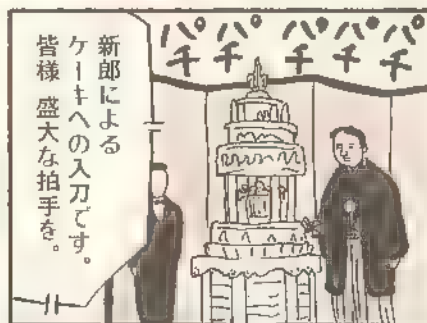 パチ パチ パチ パチ パチ
新郎による
ケーキへの入刀です。
皆様 盛大な拍手を。